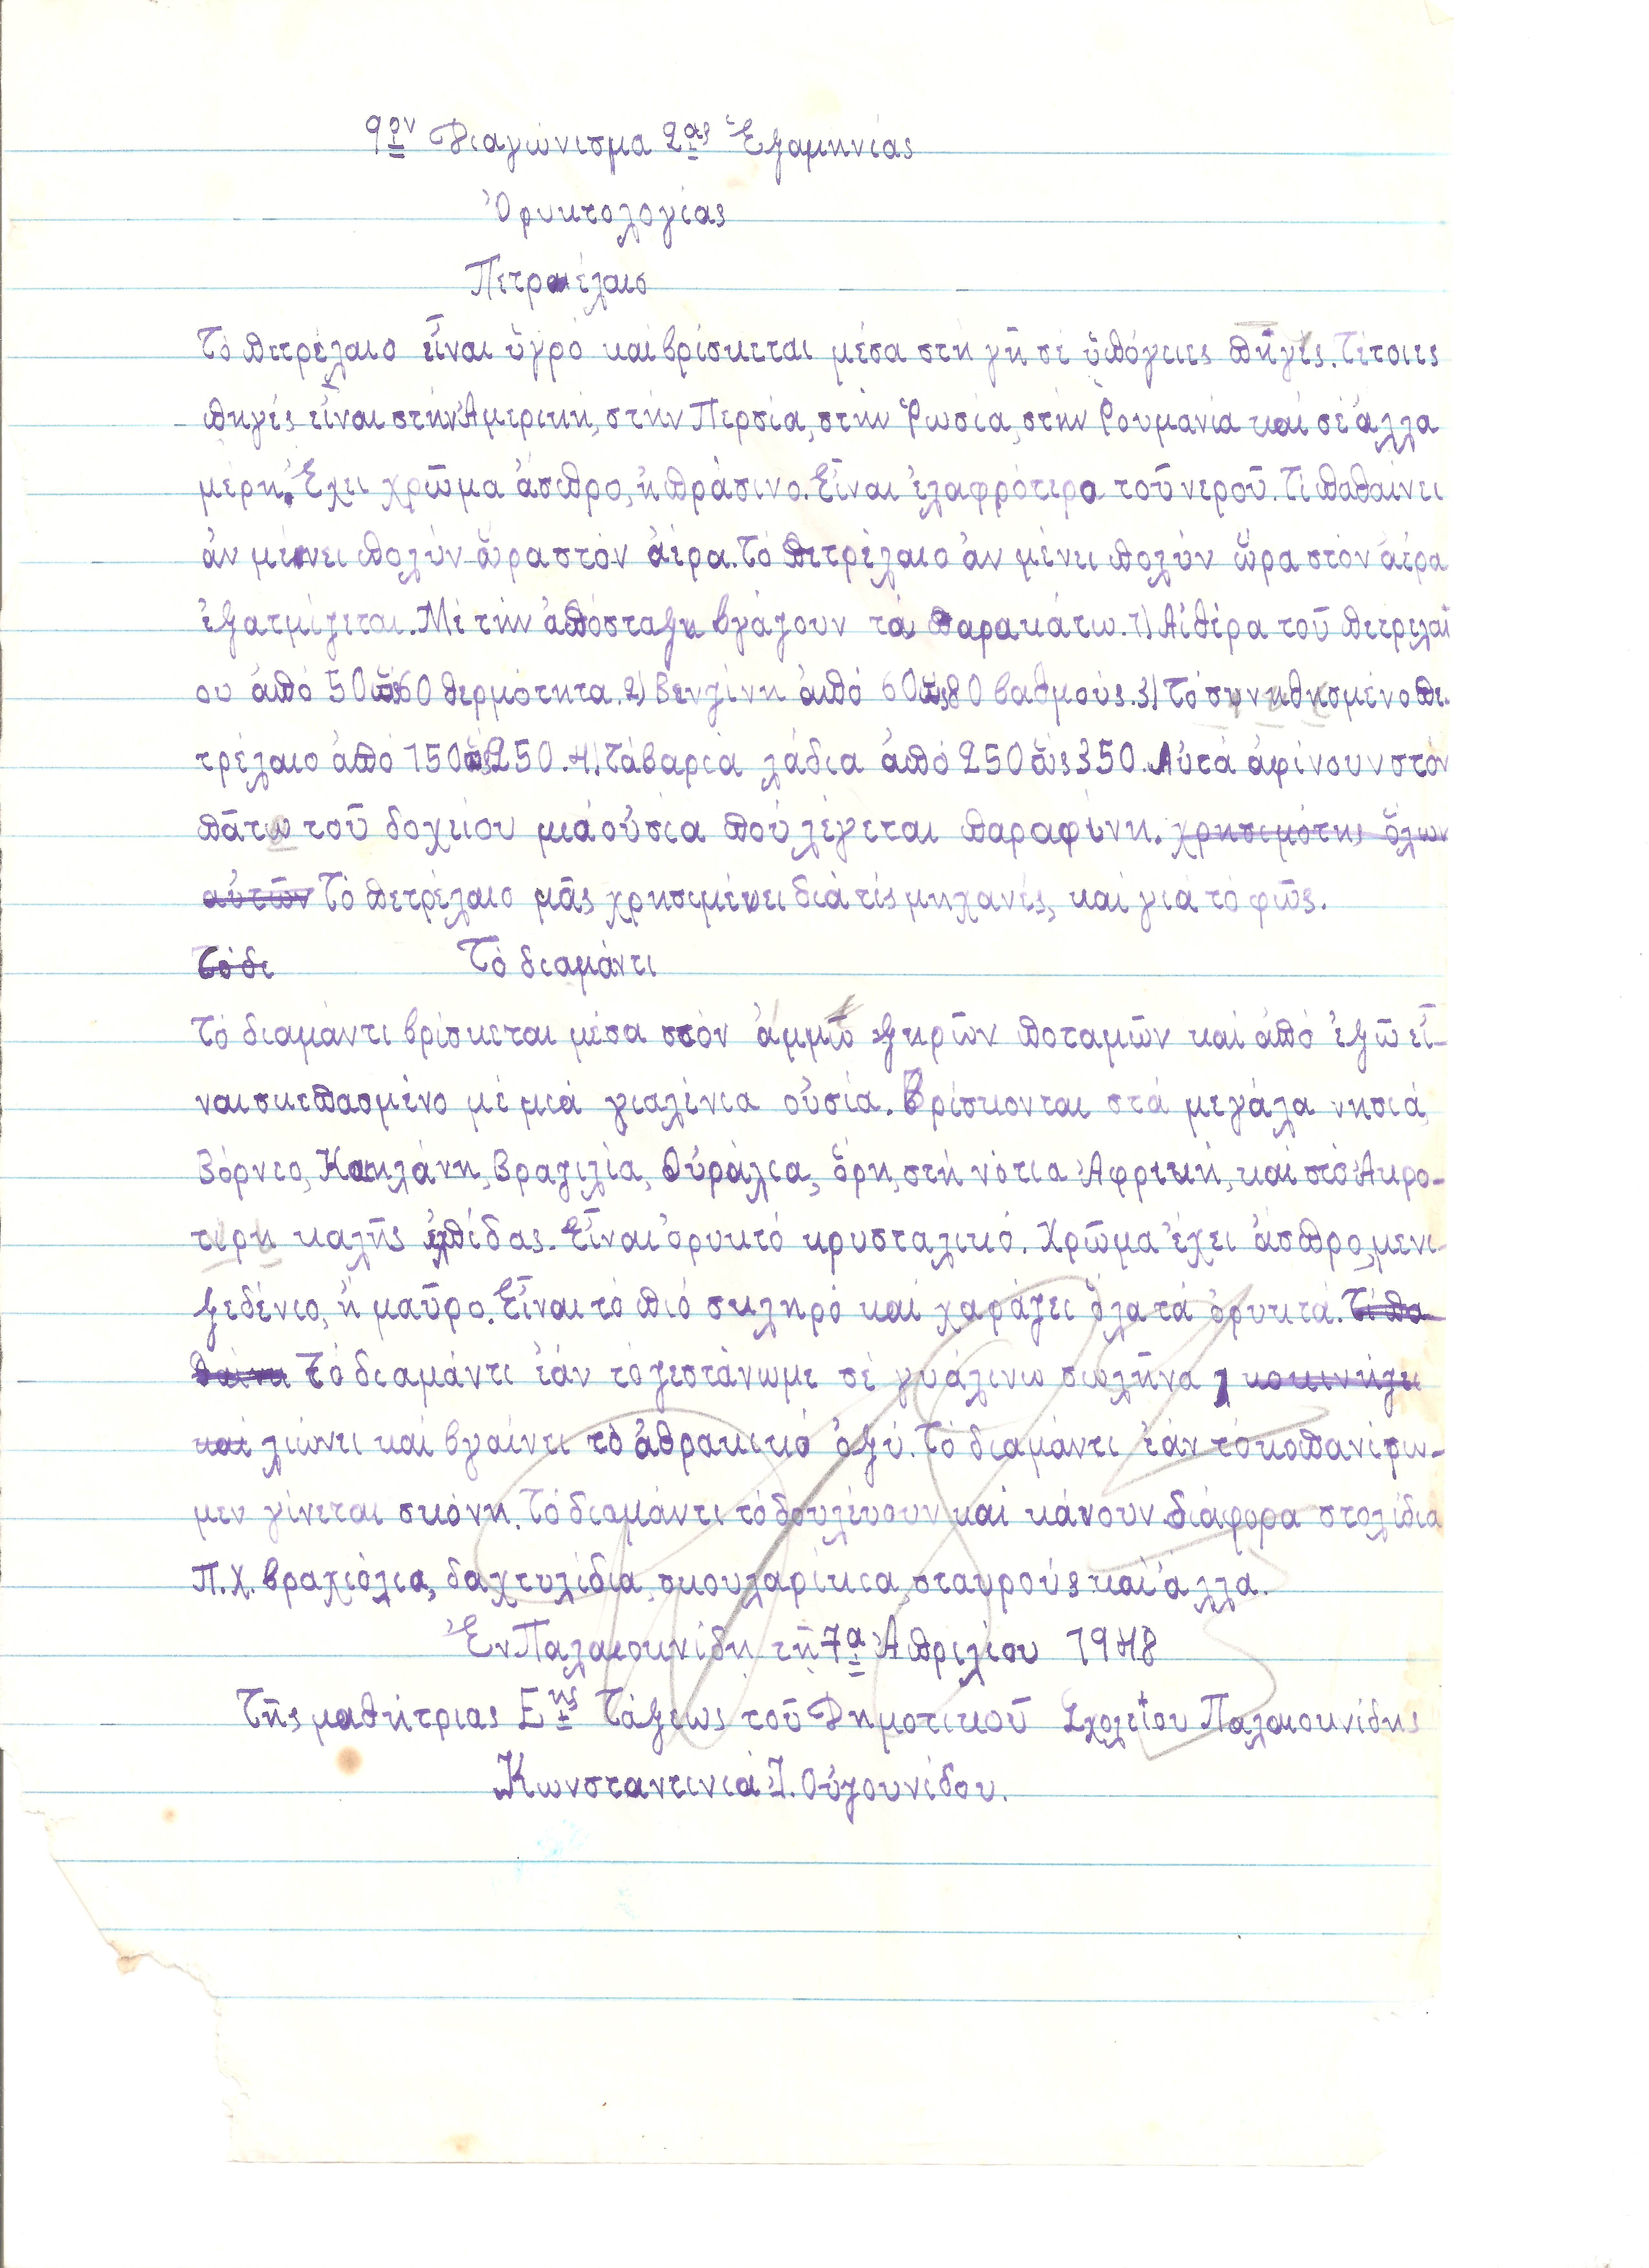 9ον Διαγώνισμα 2ας Ἑξαμηνίας
Ὀρυκτολογίας
Πετρελαιο
Τό πετρέλαιο εἶναι ὑγρό καί βρίσκεται μέσα στή γῆ σέ ὑπόγειες πηγές. Τέτοιες
πηγές εἶναι στήν Ἀμερική, στήν Περσία, στήν Ῥωσία, στήν Ῥουμανία καί σέ ἄλλα
μέρη. Ἔχει χρῶμα ἄσπρο, ἤ πράσινο. Εἶναι ἐλαφρότερο τοῦ νεροῦ. Τί παθαίνει
ἄν μένει πολύν ὥρα στόν ἀέρα. Τό πετρέλαιο ἄν μένει πολύν ὥρα στόν ἀέρα
ἐξατμίζεται. Μέ τήν ἀπόσταξη βγάζουν τά παρακάτω. 1) Αἰθέρα τοῦ πετρελαί
ου ἀπό 50 ὥς 60 θερμότητα. 2) Βενζίνη ἀπό 60 ὥς 80 βαθμούς. 3) Τό συνηθησμένο πε-
τρέλαιο ἀπό 150 ὥς 250. 4) Τά βαρία λάδια ἀπό 250 ὥς 350. Αὐτά ἀφίνουν στόν
πάτω τοῦ δοχείου μιά οὐσία πού λέγεται παραφίνη. χρησιμότης ὅλων
αὐτῶν Τό πετρέλαιο μᾶς χρησιμέψει διά τίς μηχανές, καί γιά τό φῶς.
Τό δι Τό διαμάντι
Τό διαμάντι βρίσκεται μέσα στόν ἀμμῶ ξηρῶν ποταμῶν καί ἀπό ἐξῶ εἶ-
ναι σκεπασμένο μέ μιά γιαλένια οὐσία. Βρίσκονται στά μεγάλα νησιά
Βόρνεο, Κεηλάνη, Βραζιλία, Οὐράλια, ὄρη, στή νότια Ἀφρική, καί στό Ἀκρο-
τίρη καλῆς ἐλπίδας. Εἶναι ὀρυκτό κρυσταλικό. Χρῶμα ἔχει ἄσπρο, μενε-
ξεδένιο, ἤ μαῦρο. Εἶναι τό πιό σκληρό καί χαράζει ὅλα τά ὀρυκτά. Τί πα
θαίνει Τό διαμάντι ἐάν τό ζεστάνωμε σέ γυάλινω σωλῆνα κοκινήζει
καί λιώνει καί βγαίνει τό ἀθρακικό ὀξύ. Τό διαμάντι ἐάν τό κοπανίσω-
μεν γίνεται σκόνη. Τό διαμάντι τό δουλέυουν καί κάνουν διάφορα στολίδια
Π.Χ. βραχιόλια, δαχτυλίδια, σκουλαρίκια, σταυρούς καί ἄλλα.
Ἐν Παλαιοκνίδη τῇ 7ᾳ Ἀπριλίου 1948
Τῆς μαθήτριας Εης Τάξεως τοῦ Δημοτικοῦ Σχολείου Παλαιοκνίδης
Κωνσταντινιά Ἰ. Οὐζουνίδου.